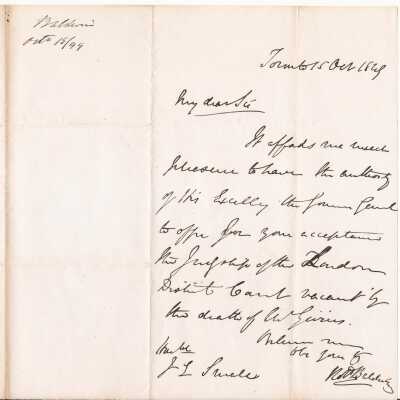 Baldwin
Octr 15/49
Toronto 15 Oct 1849
My dear Sir
It affords me much
pleasure to have the authority
of His Excelly the Governor Genl
to offer for your acceptance
the Judgship of the London
District Court vacant by
the death of Mr Givins.
Believe me
yours
Robt Baldwin
J L